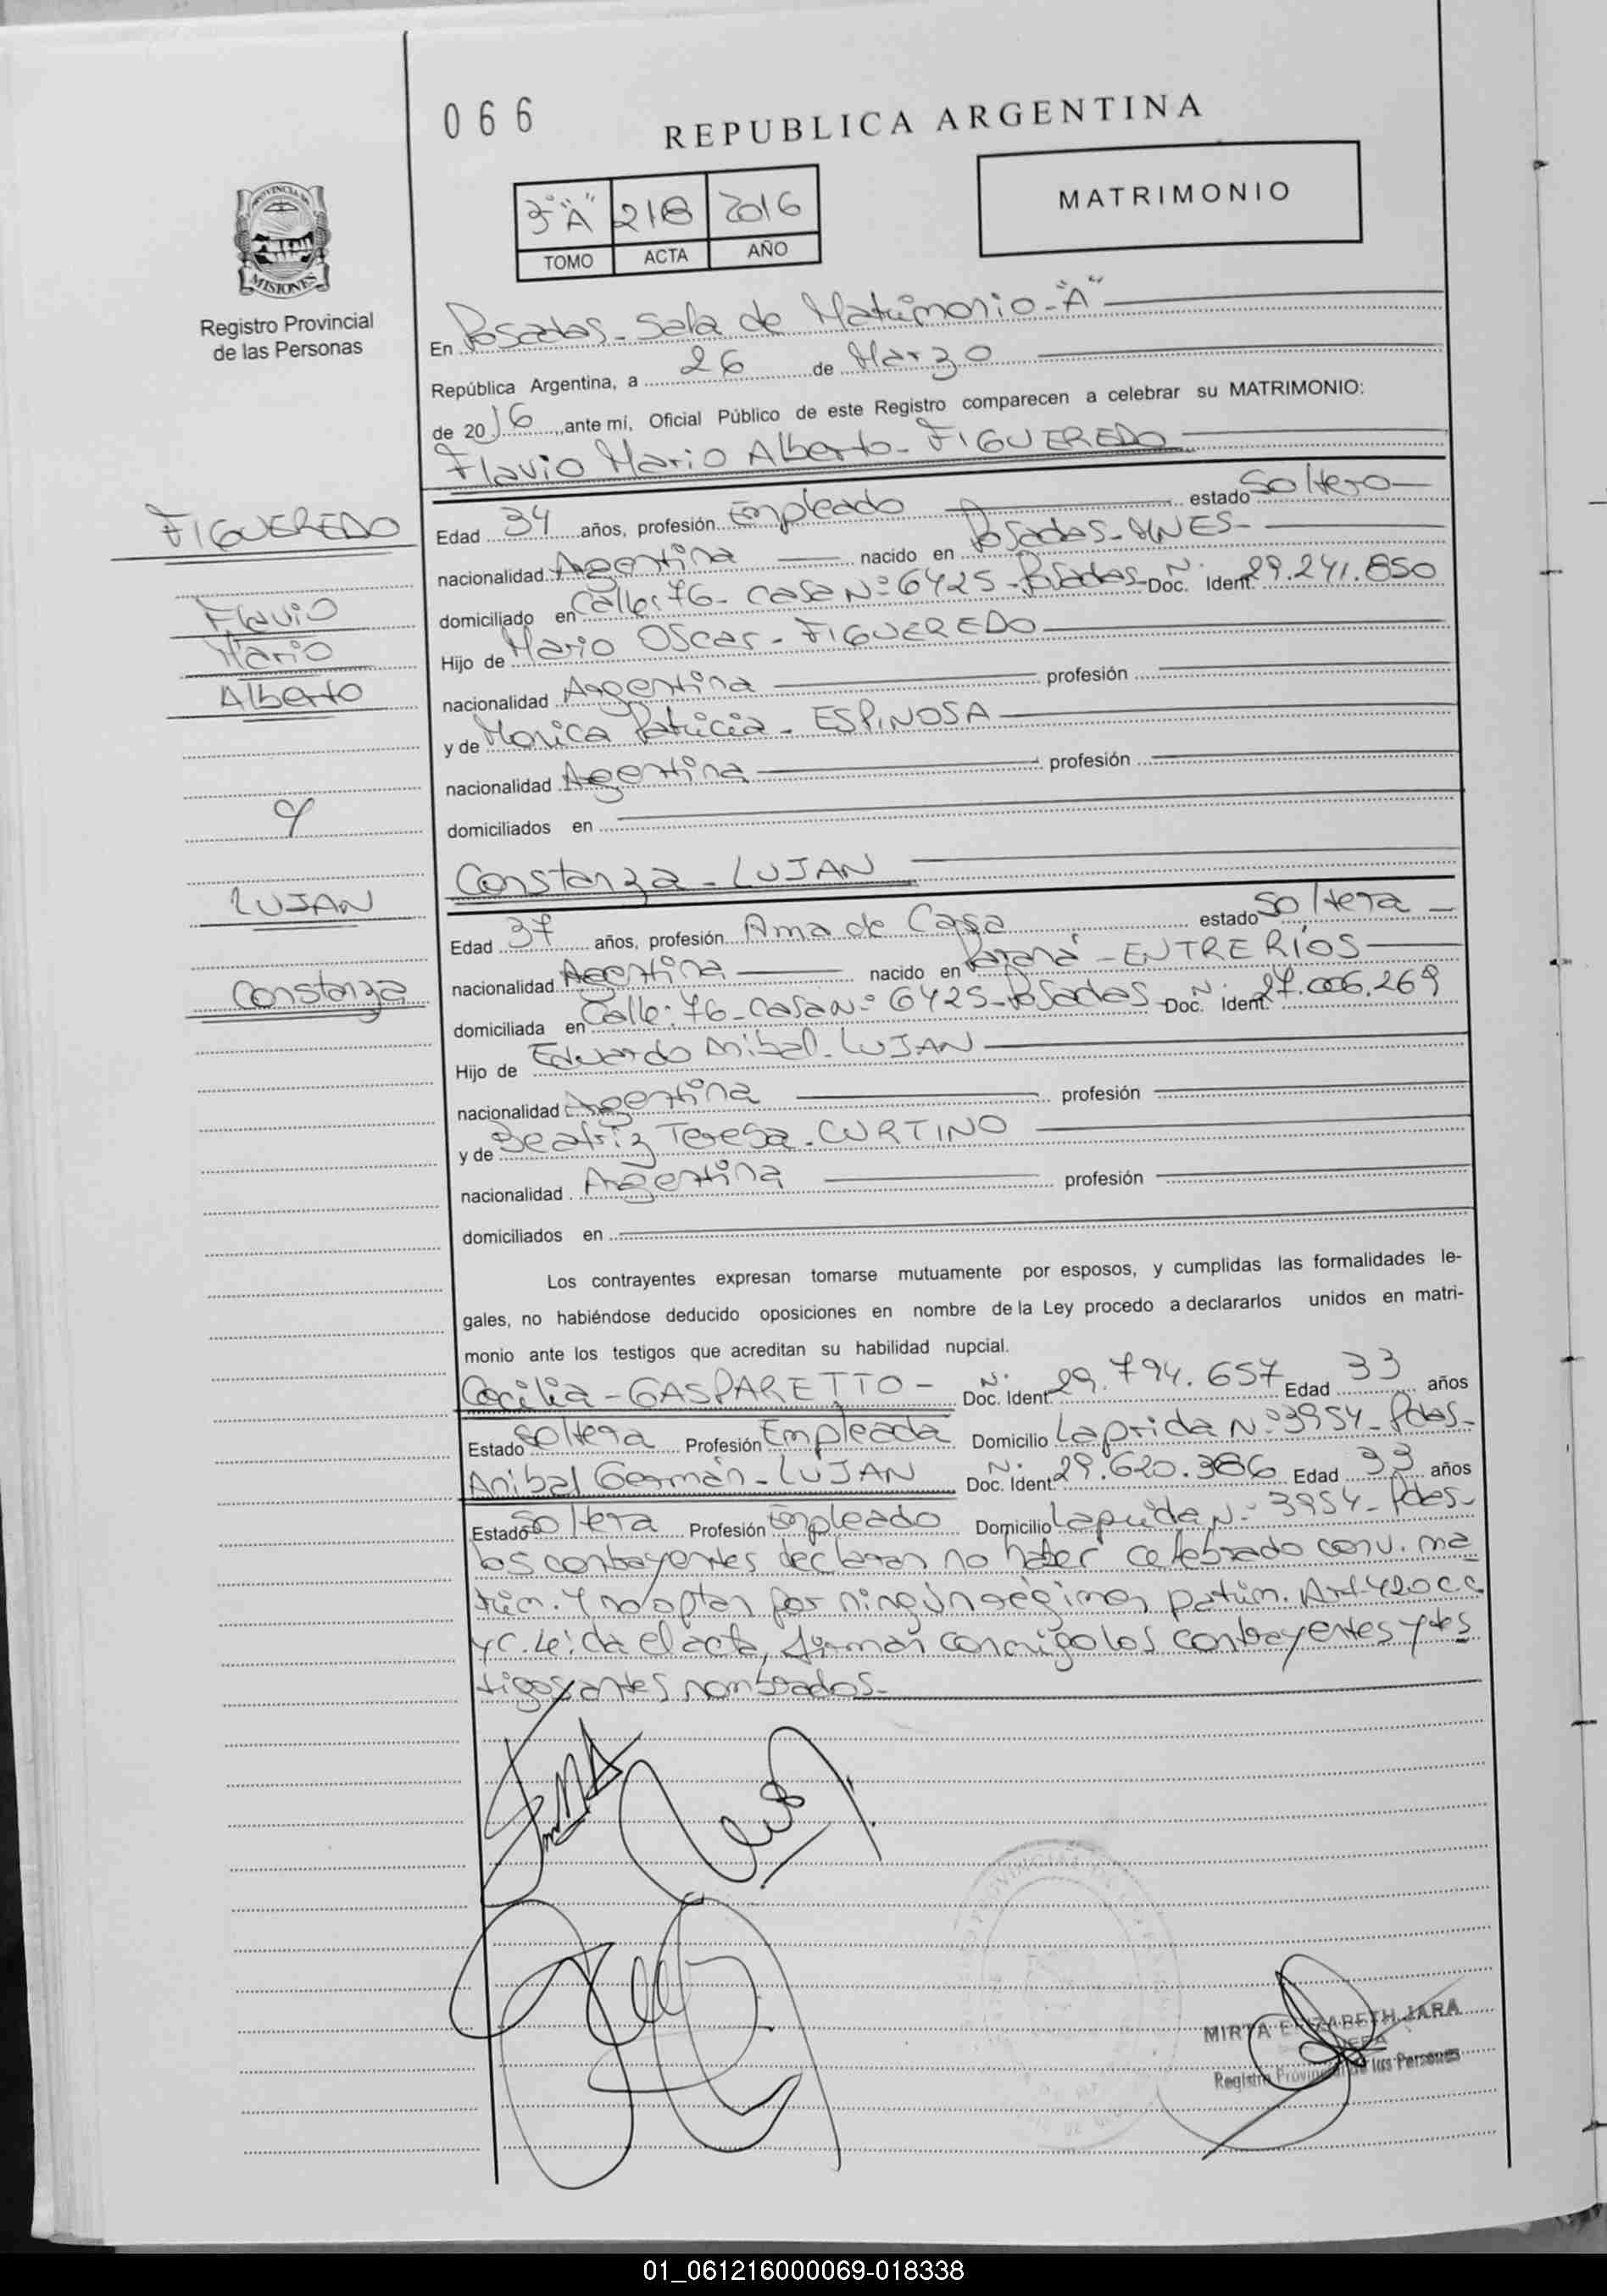 066
REPUBLICA ARGENTINA
3° "A" 218 2016
TOMO ACTA AÑO
MATRIMONIO
PROVINCIA DE
MISIONES
Registro Provincial
de las Personas
En Posadas - Sala de Matrimonio - "A"
República Argentina, a 26 de Marzo
de 2016, ante mí, Oficial Público de este Registro comparecen a celebrar su MATRIMONIO:
Flavio Mario Alberto - FIGUEREDO
FIGUEREDO
Flavio
Mario
Alberto
y
LUJAN
Constanza
Edad 34 años, profesión Empleado estado Soltero
nacionalidad Argentina nacido en Posadas - MNES -
domiciliado en Calle: 76 - Casa N° 6425 - Posadas - Doc. N° Ident. 29.241.850
Hijo de Mario Oscar - FIGUEREDO
nacionalidad Argentina profesión
y de Monica Patricia - ESPINOSA
nacionalidad Argentina profesión
domiciliados en
Constanza - LUJAN
Edad 37 años, profesión Ama de Casa estado Soltera
nacionalidad Argentina nacido en Paraná - ENTRE RÍOS
domiciliada en Calle: 76 - Casa N° 6425 - Posadas - Doc. N° Ident. 27.006.269
Hijo de Eduardo Anibal - LUJAN
nacionalidad Argentina profesión
y de Beatriz Teresa - CURTINO
nacionalidad Argentina profesión
domiciliados en
Los contrayentes expresan tomarse mutuamente por esposos, y cumplidas las formalidades le-
gales, no habiéndose deducido oposiciones en nombre de la Ley procedo a declararlos unidos en matri-
monio ante los testigos que acreditan su habilidad nupcial.
Cecilia - GASPARETTO - Doc. N° Ident. 29.794.657 Edad 33 años
Estado Soltera Profesión Empleada Domicilio Laprida N° 3954 - Pdas -
Anibal Germán - LUJAN Doc. N° Ident. 29.620.386 Edad 33 años
Estado Soltera Profesión Empleado Domicilio Laprida N° 3954 - Pdas -
los contrayentes declaran no haber celebrado conv. ma
trim. Y no optan por ningún régimen patrim. Art 420 c.c.
y C. Leída el acta, firman conmigo los contrayentes y tes
tigos antes nombrados -
MIRTA ELIZABETH JARA
JEFA
Registro Provincial de las Personas
01_061216000069-018338